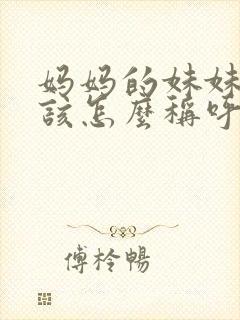 妈妈的妹妹
该怎麽稱呼
傅柃暢